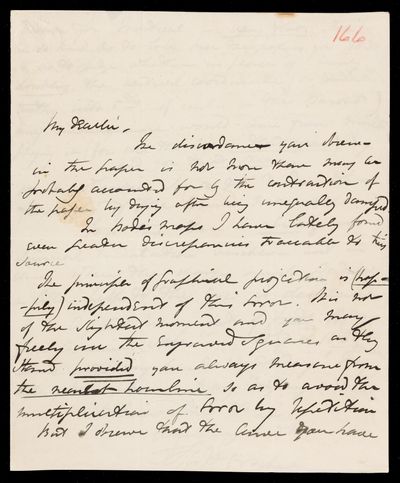 166
My dear Sir,
The discordance you observe
in the paper is not more than may be
probably accounted for by the contraction of
the paper by drying after being unequally damped
In Index maps I have lately found
even greater discrepancies traceable to this
source
The principle of graphical projection is (hap-
-pily) independent of this error. It is not
of the slightest moment and you may
freely use the Engraved Squares as they
stand provided you always measure from
the nearest hourline so as to avoid the
multiplication of error by repetition
But I observe that the curve you have